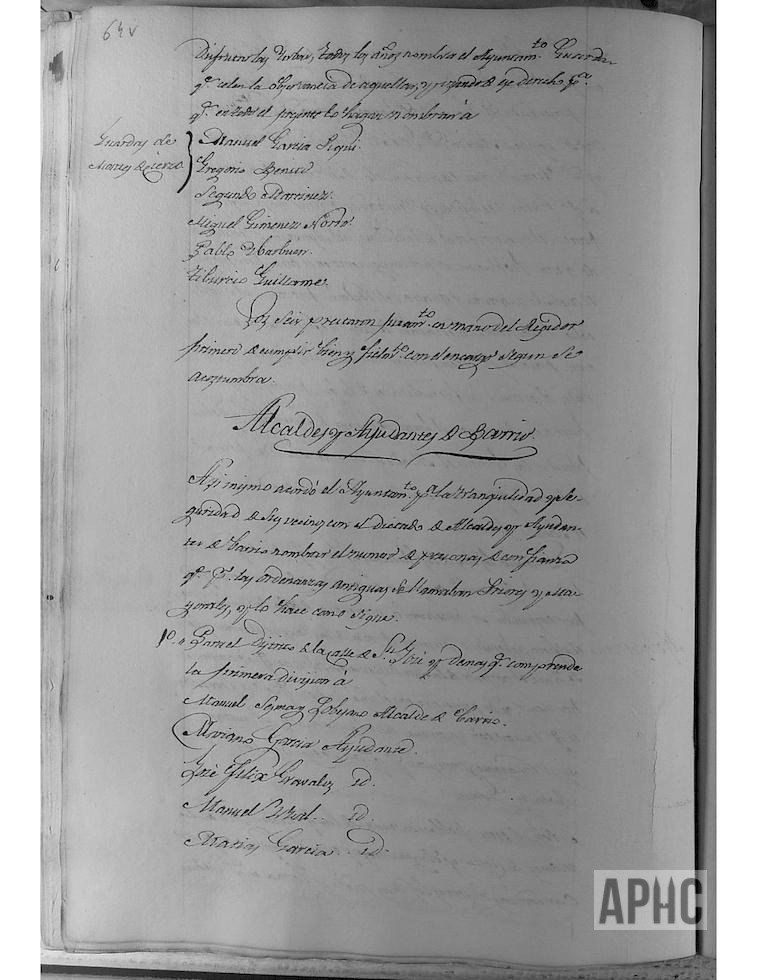 64v
Disfrutar las Yerbas, todos los años nombra el Ayuntam.to Guardas
q.e celen la observancia de aquellas, y usando de ese derecho p.a
q.e en todo el presente lo hagan nombrará
Guardas de
Montes de
Manuel Garcia
Gregorio Benito
Segundo Martinez.
Miguel Gimenez
Pablo Marbuen.
Tiburcio Guillorme.
Los Seis prestaron juram.to en mano del Regidor
primero de cumplir bien y fielm.te con el encargo segun se
acostumbra.
Alcaldes y Ayudantes de Barrio.
Asi mismo acordó el Ayuntam.to p.a la tranquilidad y se-
guridad de sus vecinos con el Dictado de Alcaldes y Ayudan-
tes de barrio nombrar el numero de personas de confianza
q.e p.r las ordenanzas antiguas se llamaban Priores y Ma-
yorales, y lo hace como sigue.
1.o P.a el de la calle de S.n José y demas q.e comprende
la primera division á
Manuel Lobejano Alcalde de barrio.
Mariano Garcia Ayudante.
José Felix Gonzalez id.
Manuel Vidal. id.
Matias Garcia. id.
APHC